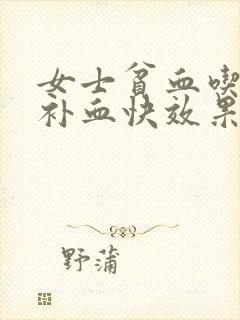 女士贫血喫
补血快效果
野蒲